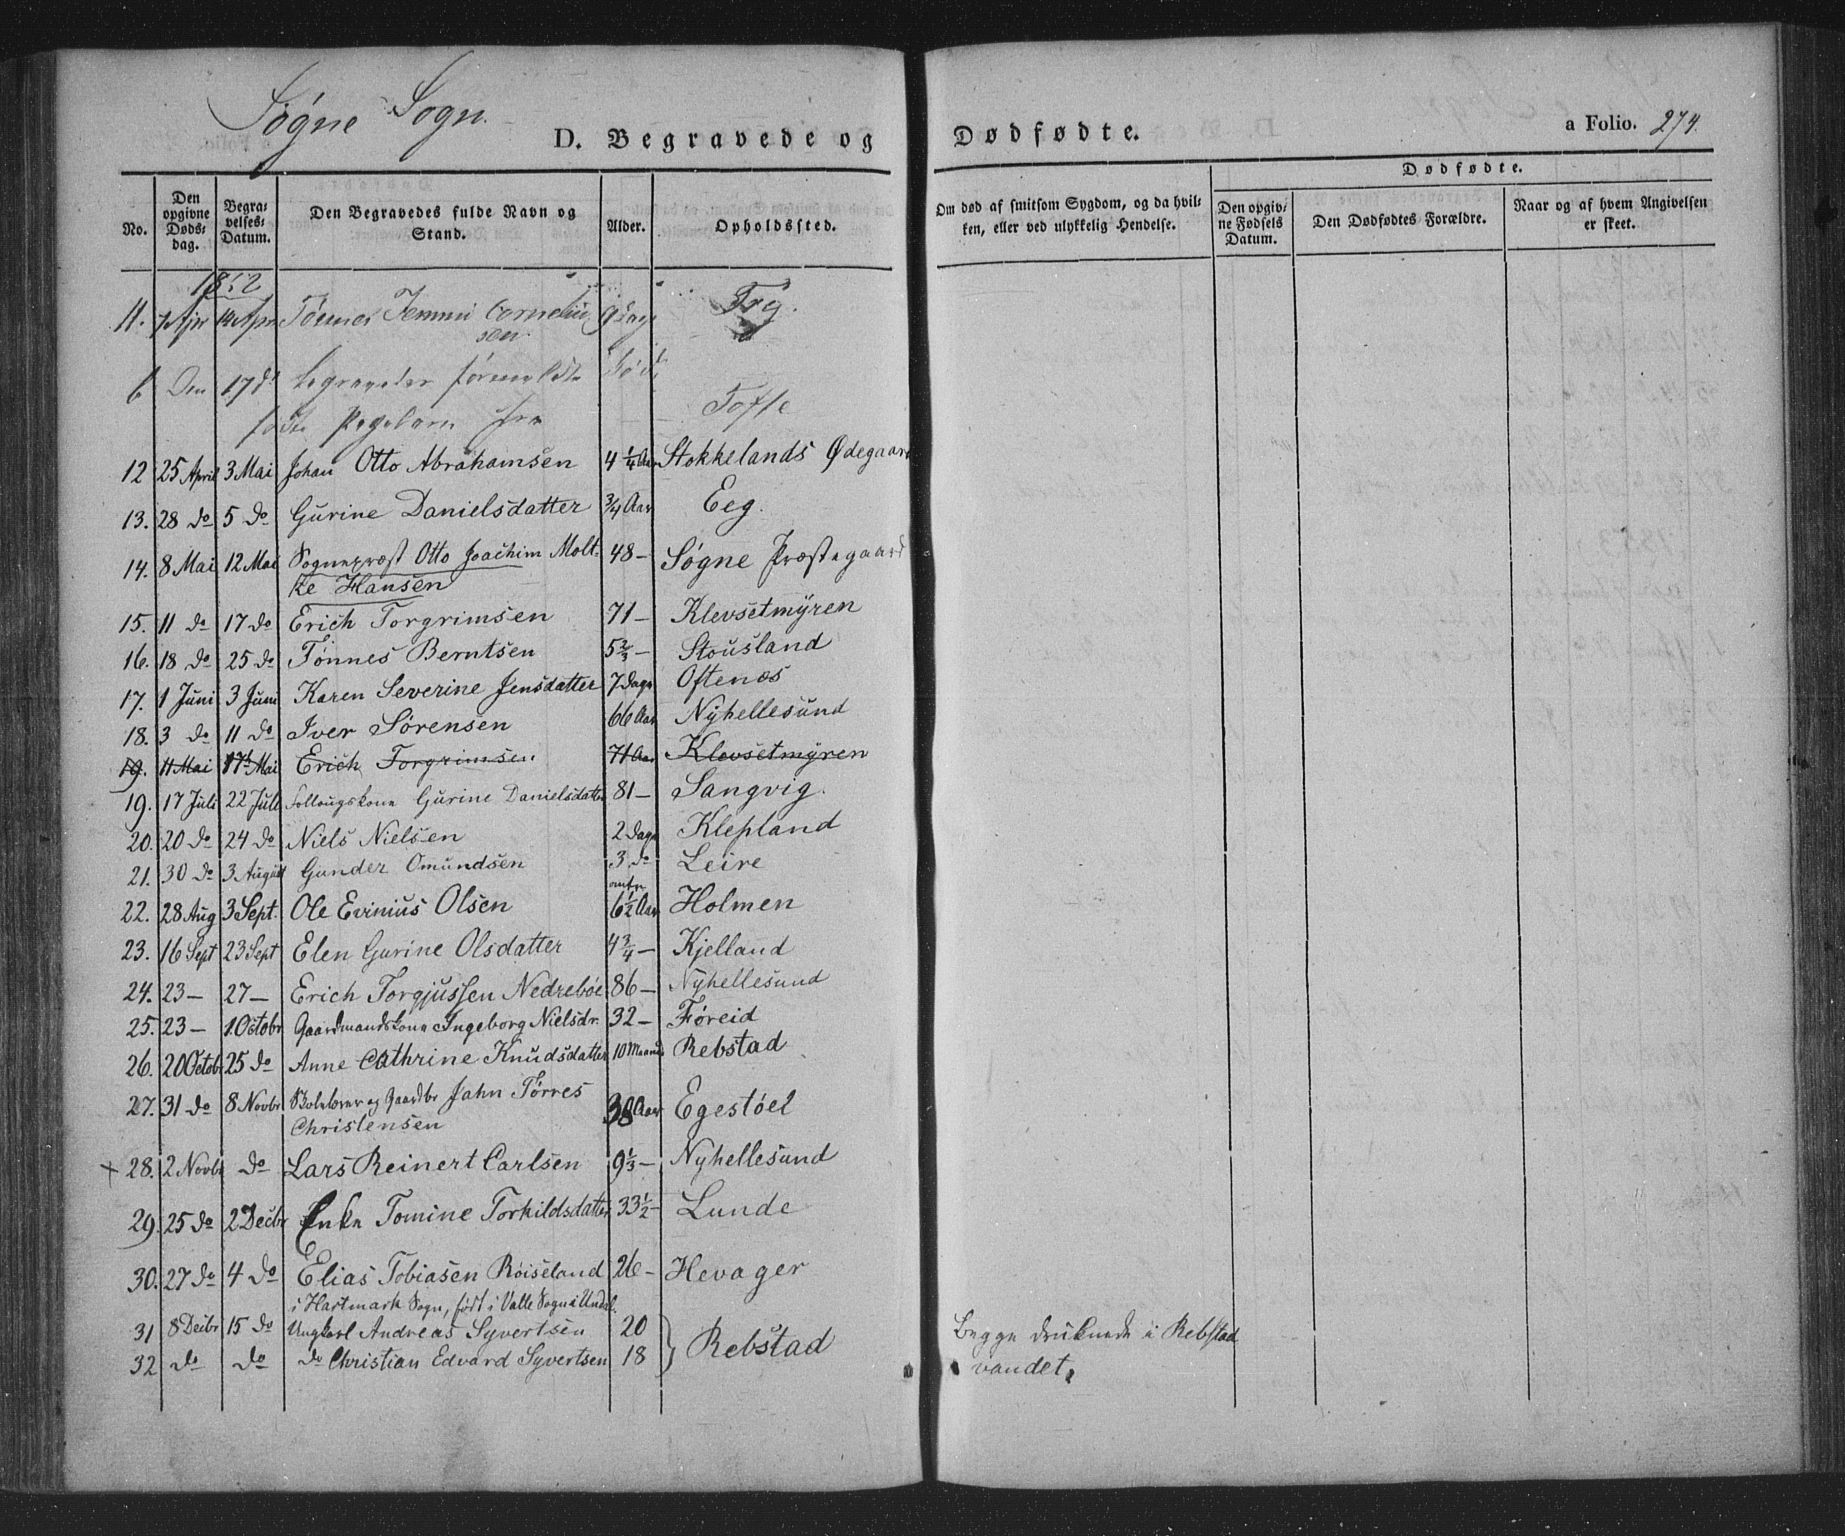 Søgne Sogn.
D. Begravede og Dødfødte.
a Folio. 274.
No.
Den opgivne Døds-dag.
Begra-velses-Datum.
Den Begravedes fulde Navn og Stand.
Alder.
Opholdssted.
Om død af smitsom Sygdom, og da hvil-ken, eller ved ulykkelig Hendelse.
Dødfødte.
Den opgiv-ne Fødsels Datum.
Den Dødfødtes Forældre.
Naar og af hvem Angivelsen er skeet.
1852
11. 7 Apr 14 Apr Tønnes Jemmi Cornelius
sen. 9 Dage Trg.
6 Den 17 d begravedes
fra Toffe
12 25 April 3 Mai Johan Otto Abrahamsen 4 1/4 Aar Stokkelands Ødegaard
13. 28 do 5 do Gurine Danielsdatter 3/4 Aar Eeg.
14. 8 Mai 12 Mai Sognepræst Otto Joachim Molt-
ke Hansen 48 – Søgne Præstegaard
15. 11 do 17 do Erich Torgrimsen 71 – Klevsetmÿren
16. 18 do 25 do Tønnes Berntsen 5 2/3 – Stousland
17. 1 Juni 3 Juni Karen Severine Jensdatter 7 Dage Oftenæs
18. 3 do 11 do Iver Sørensen 66 Aar Nÿhellesund
19. 11 Mai 17 Mai Erich Torgrimsen 71 Aar Klevsetmÿren
19. 17 Juli 22 Juli Follougskone Gurine Danielsdatter 81 – Sangvig.
20. 20 do 24 do Niels Nielsen 2 Dage Klepland
21. 30 do 3 August Gunder Omundsen 3 do Leire
22. 28 Aug 3 Sept. Ole Evinius Olsen omtr 6 1/2 Aar Holmen
23. 16 Sept 23 Sept Elen Gurine Olsdatter 4 3/4 – Kjelland
24. 23 – 27 – Erich Torgjussen Nedrebøe 86 – Nÿhellesund
25. 23 – 1. Octobr Gaardmandskone Ingeborg Nielsdr. 32 – Føreid
26. 20 Octobr 25 do Anne Cathrine Knudsdatter 10 Maand Rebstad
27. 31 do 8 Novbr Skolelærer og Gaardbr Jahn Tørres
Christensen 38 Aar Egestøel
+ 28. 2 Novbr do Lars Reinert Carlsen 9 1/3 – Nÿhellesund
29. 25 do 2 Decbr Enke Tomine Torkildsdatter 33 1/2 – Lunde
30. 27 do 4 do Elias Tobiasen Røiseland 26 – Hevager
i Hartmark Sogn, født i Valle Sogn i Undal.
31 8 Decbr 15 do Ungkarl Andreas Syvertsen 20 } Rebstad Begge druknede i Rebstad
32 do do do Christian Edvard Syvertsen 18 vandet.